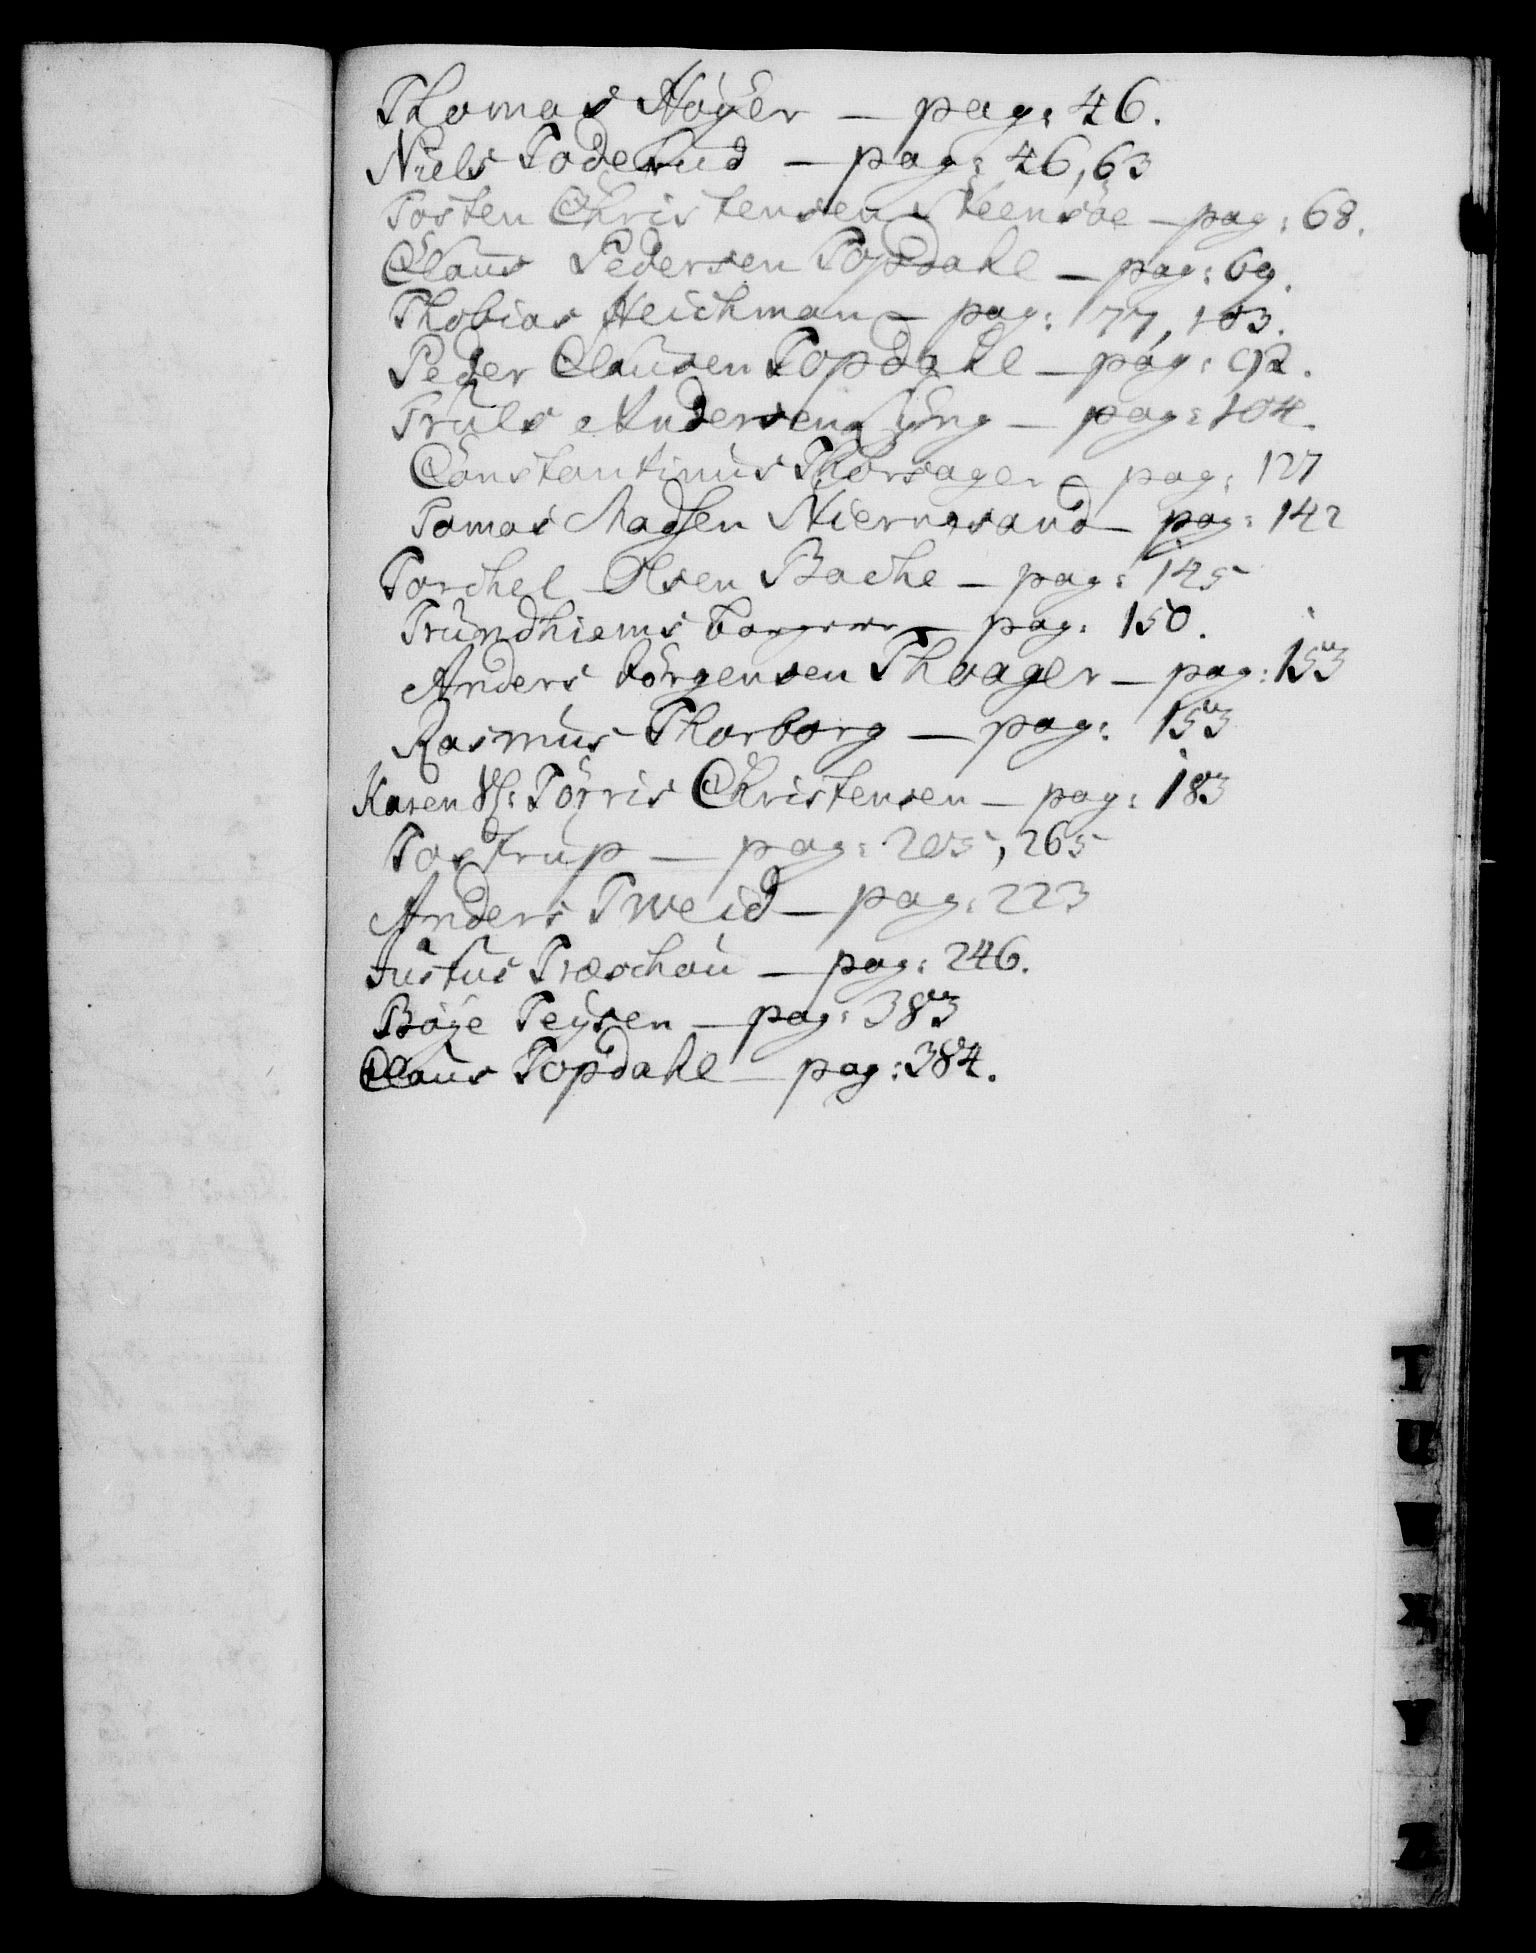 Thomas Høÿer — pag: 46.
Niels Toderud — pag: 46, 63
Tosten Christensen Steensøe — pag: 68.
Claus Pedersen Topdahl — pag: 69.
Thobias Heichman — pag: 77, 103.
Peder Clausen Topdahl — pag: 92.
Truls Andersen Liung — pag: 104.
Constantinus Thorsager — pag: 127
Tomas Madsen Niernesand — pag: 142
Torchel Olsen Bache — pag: 145
Trundhiems Borgere — pag: 150.
Anders Jørgensen Thoager — pag: 153
Rasmus Thorborg — pag: 153
Karen Sl: Tørris Christensen — pag: 183
Tostrup — pag: 205, 265
Anders Tweid — pag: 223
Justus Træschau — pag: 246.
Bøÿe Teÿsen — pag: 383
Claus Topdahl — pag: 384.
T
U
X
Y
Z